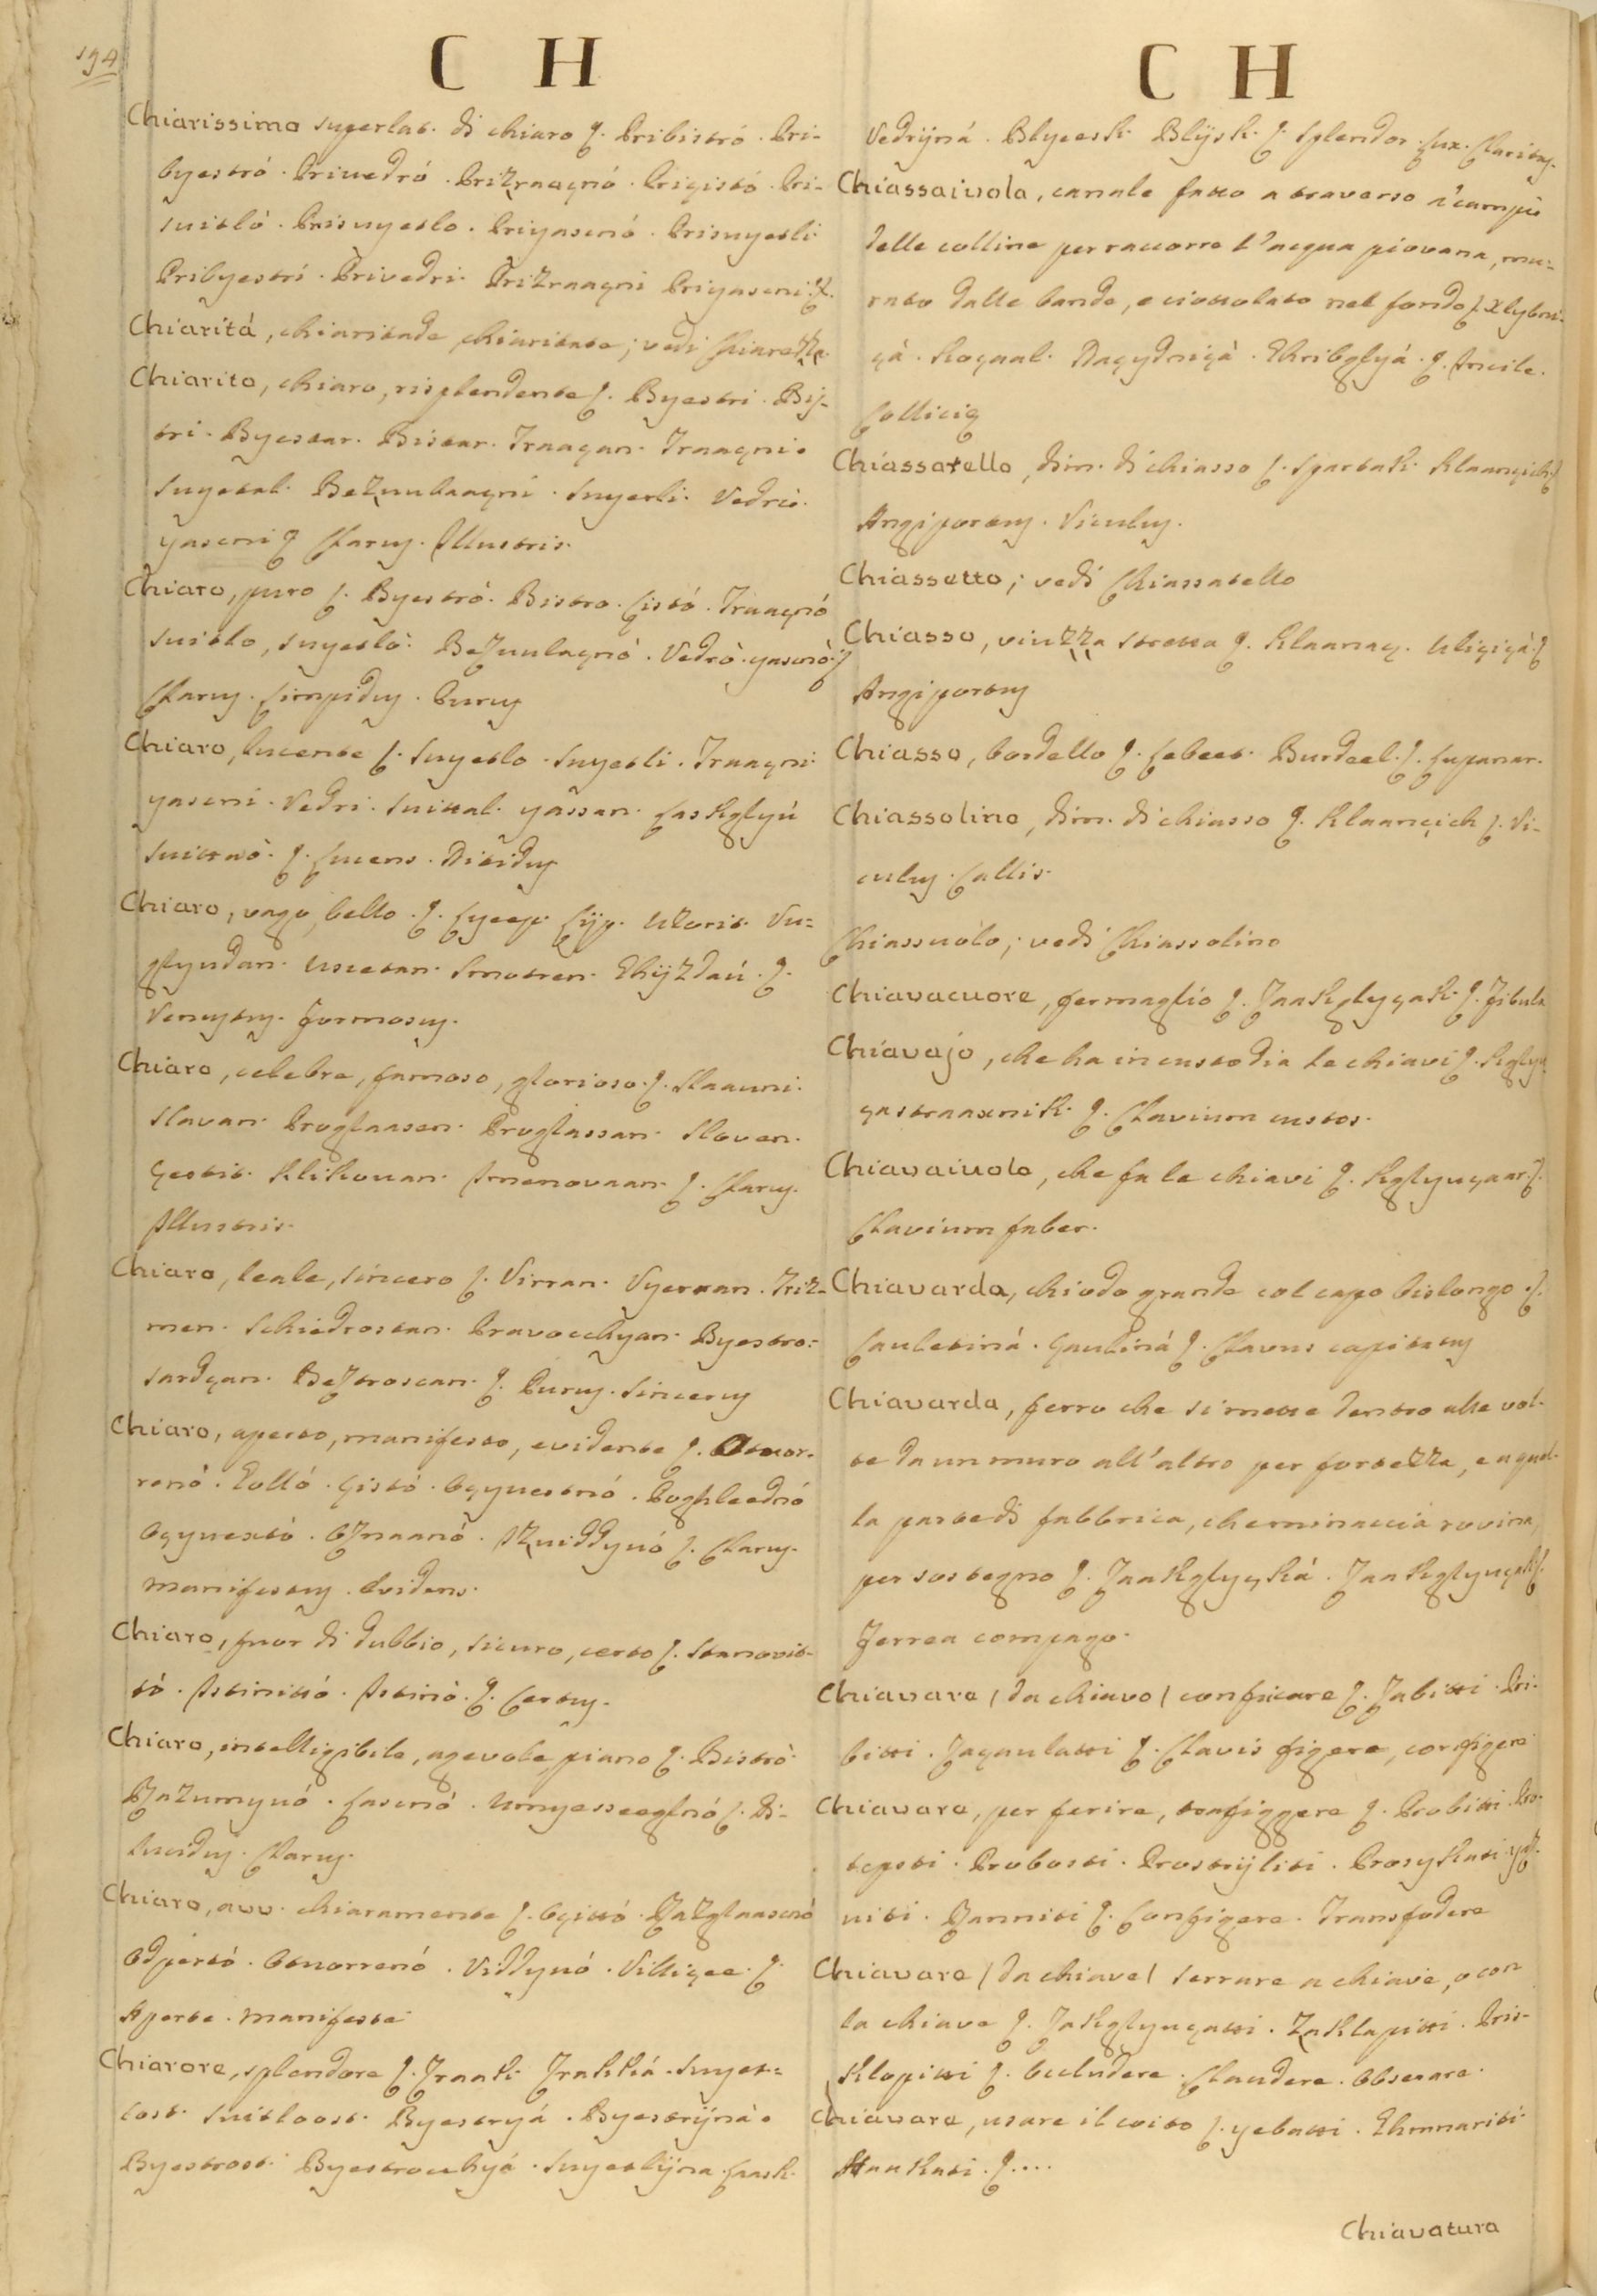 194
C H
Chiarissimo superlat. di chiaro ʃ. Pribistró. Pri-
byestró. Privedró. Prizraaçnó. Pricistó. Pri-
suitló. Prisuyetlo. Priyasenó. Prisuyetli
Pribyestri. Privedri. Prizraaçni Priyaseni. ʃ.
Chiaritá, chiaritade, chiaritate; vedi Chiarezza.
Chiarito, chiaro, risplendente ʃ. Byestri. Bis-
tri. Byestar. Bistar. Zraaçan. Zraaçni.
Suyetal. Bezmulaaçni. Suyetli. Vedrio.
yaseni ʃ Clarus. Illustris.
Chiaro, puro ʃ. Byestró. Bistro. Cistó. Zraaçnó
Suitlo, Suyetló. Bezmulaçnó. Vedró. yasenó ʃ
Clarus. Limpidus. Purus
Chiaro, lucente ʃ. Suyetlo. Suyetli. Zraaçni
yaseni. Vedri. Suittal. yassan. Laskglyú
Suittnó. ʃ. Lucens. Nitidus
Chiaro, vago, bello. ʃ. Lyeep. Liip. Uzorit. Vu-
glyudan. Uscetan. Smotren. Ghizdaú. ʃ.
Venustus. Formosus.
Chiaro, celebre, famoso, glorioso. ʃ. Slaauni.
Slavan. Proglaasen. Proglassan. Sloven.
Çestit. Klikovan. Imenovaan. ʃ. Clarus.
Illustris.
Chiaro, leale, sincero ʃ. Virran. Vyerran. Triz-
men. Schiedrostan. Pravocchyan. Byestro-
sardçan. Beztroscan. ʃ. Purus. Sincerus
Chiaro, aperto, manifesto, evidente ʃ. Otvor-
renó. Golló. Çistó. Oçyuestnó. Poghleednó
Oçyuextó. Oznaanó. Izuiddynó ʃ. Clarus.
Manifestus. Evidens.
Chiaro, fuor di dubbio, sicuro, certo ʃ. Stanovit-
tó. Istinittó. Istinó. ʃ. Certus.
Chiaro, intelligibile, agevole, piano ʃ. Bistró
Razumynó. Lasenó. Umyesseeglnó ʃ. Di-
lucidus. Clarus.
Chiaro, avv. chiaramente ʃ. Oçittó. Razglaasenó
Odpertó. Otuorrenó. Viddynó. Villiçee. ʃ.
Aperte. Manifeste
Chiarore, splendore ʃ. Zraak. Zrakká. Suyet-
lost. Suitloost. Byestryá. Byestriná.
Byestrost. Byestrocchyá. Suyetlijna. Lask.
C H
Vedrijná. Blyeesk. Blijsk. ʃ. Splendor. Lux. Claritas.
Chiassaivola, canale fatto a traverso i campi
delle colline per raccorre l'acqua piovana, mu-
rato dalle bande, e ciottolato nel fondo ʃ. Xlybni-
çà. Kopaal. Nagydniçà. Ghribglyá. ʃ. Incile.
Collicig
Chiassatello, dim. di chiasso ʃ. Spartak. Klaançich ʃ
Angiportus. Viculus.
Chiassetto; vedi Chiassatello
Chiasso, viuzza stretta ʃ. Klaanaç. Uliçiçà. ʃ
Angiportus
Chiasso, bordello ʃ. Lebeet. Burdeel. ʃ. Lupanar.
Chiassolino, dim. di chiasso ʃ. Klaançich ʃ. Vi-
culus. Callis.
Chiassuolo; vedi Chiassolino
Chiavacuore, fermaglio ʃ. Zaakglyçak. ʃ. Fibula
Chiavajo, che ha in custodia le chiavi ʃ. Kglyu-
çastraaxnik. ʃ. Clavium custos.
Chiavaivolo, che fa le chiavi ʃ. Kglyuçaar. ʃ.
Clavium faber.
Chiavarda, chiodo grande col capo bislongo. ʃ.
Çauletiná. Çauliná ʃ. Clavus capitatus
Chiavarda, ferro che si mette dentro alle vol-
te da un muro all'altro per fortezza, e a quel-
la parte di fabbrica, che minaccia rovina,
per sostegno ʃ. Zaakglyçká. Zaakglyuçak ʃ.
Ferrea compago.
Chiavare (da chiavo) conficcare ʃ. Zabitti. Pri-
bitti. Zaçaulatti ʃ. Clavis figere, configere
Chiavare, per ferire, trafiggere ʃ. Probitti. Pro-
tepsti. Probosti. Prostrijliti. Prosykati. yaz-
viti. Ranniti ʃ. Configere. Transfodere
Chiavare (da chiave) serrare a chiave, o con
la chiave ʃ. Zakglyuçatti. Zaklapitti. Pris-
klopitti ʃ. Occludere. Claudere. Obserare.
Chiavare, usare il coito ʃ. yebatti. Ghmnariti
Haukati. ʃ....
Chiavatura